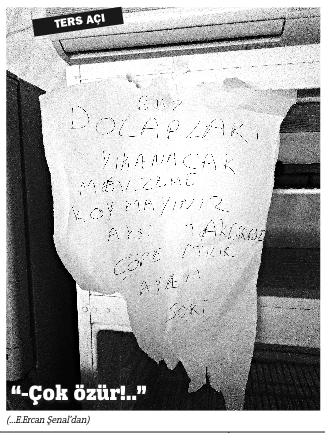 TERS AÇI
BUZ
DOLAPLARI
YIKANACAK
MALZEME
KOYMAYINIZ
AKSİ TAKTİRDE
ÇÖPE ATILIR
“-Çok özür!..”
(...E.Ercan Şenal’dan)